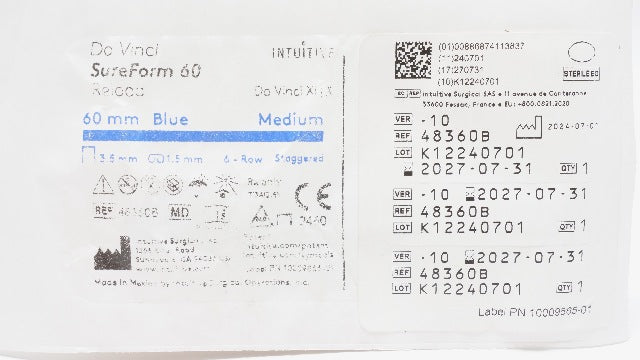 Da Vinci
SureForm 60
Reload
INTUITIVE
Da Vinci X|Xi
60 mm Blue Medium
3.5 mm 1.5 mm 6-Row Staggered
REF 48360B MD
Rx only
CE
2460
Intuitive Surgical, Inc.
Made in Mexico by Intuitive Surgical Operations, Inc.
Label PN 10009565-01
(01)00886874113837
(11)240701
(17)270731
(10)K12240701
STERILE EO
EC REP Intuitive Surgical SAS
33600 Pessac, France
VER -10
2024-07-01
REF 48360B
LOT K12240701
2027-07-31 QTY 1
VER -10 2027-07-31
REF 48360B
LOT K12240701 QTY 1
VER -10 2027-07-31
REF 48360B
LOT K12240701 QTY 1
Label PN 10009565-01